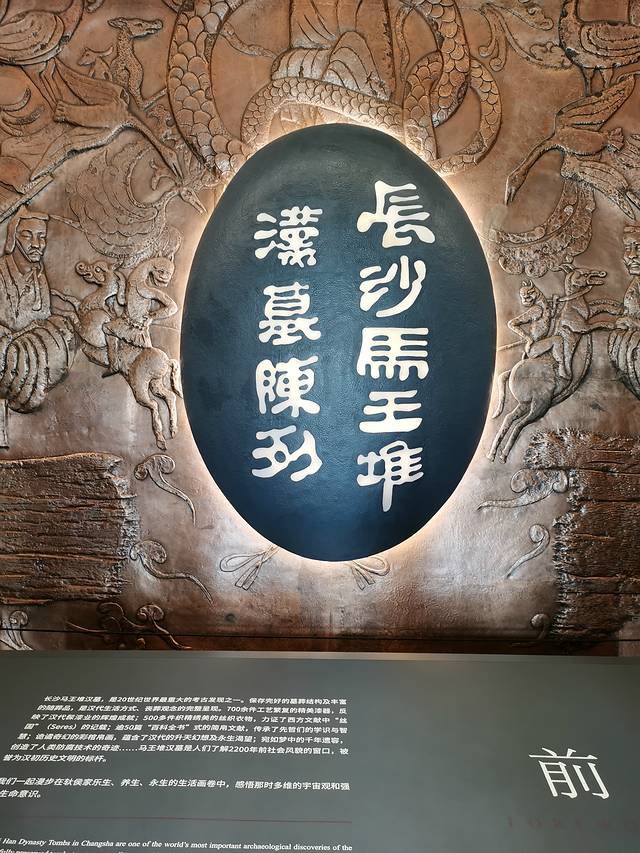 長沙馬王堆
漢墓陳列
长沙马王堆汉墓，是20世纪世界最重大的考古发现之一。保存完好的墓葬结构及丰富
的随葬品，是汉代生活方式、丧葬观念的完整呈现。700余件工艺繁复的精美漆器，反
映了汉代髹漆业的辉煌成就；500多件织精绣美的丝织衣物，力证了西方文献中“丝
国”（Seres）的记载；逾50篇“百科全书”式的简帛文献，传承了先哲们的学识与智
慧；诡谲奇幻的彩棺帛画，蕴含了汉代的升天幻想及永生渴望；宛如梦中的千年遗容，
创造了人类防腐技术的奇迹……马王堆汉墓是人们了解2200年前社会风貌的窗口，被
誉为汉初历史文明的标杆。
我们一起漫步在轪侯家乐生、养生、永生的生活画卷中，感悟那时多维的宇宙观和强
生命意识。
前
Han Dynasty Tombs in Changsha are one of the world's most important archaeological discoveries of the